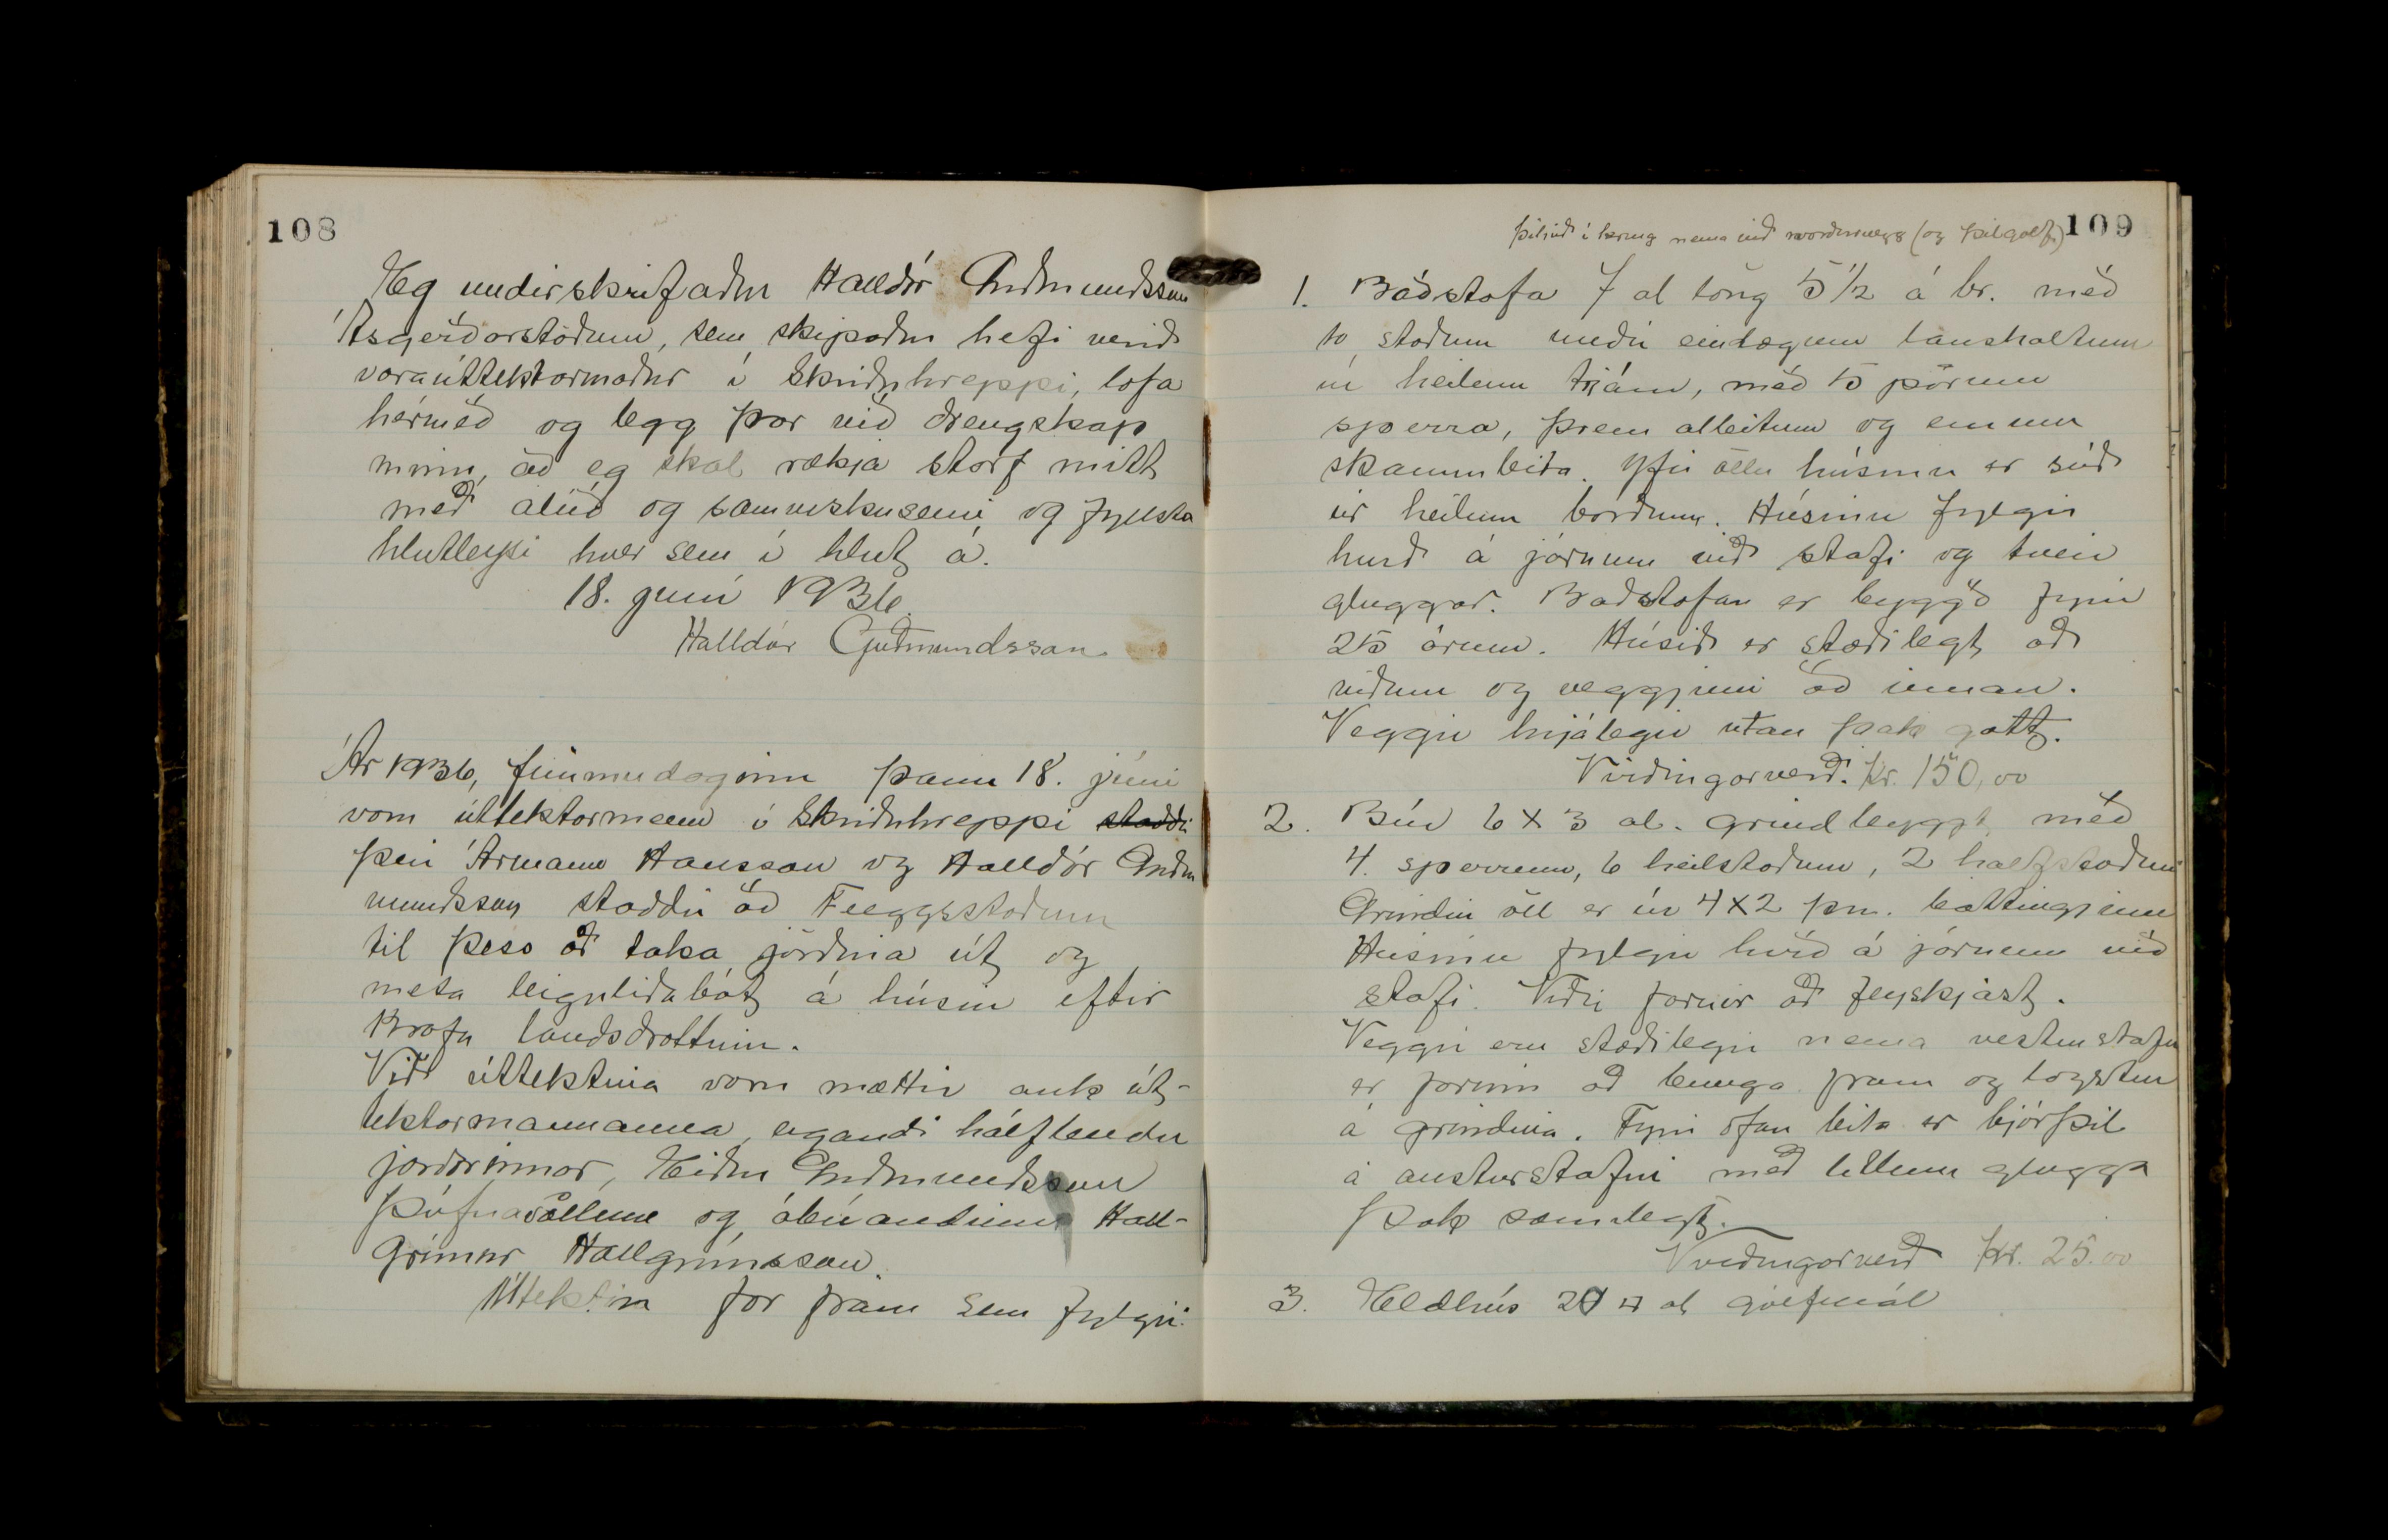 108
Eg undirskrifaður Halldór Guðmundsson
Ásgerðarstöðum, sem skipaður hefi verið
varaúttektarmaður í Skriðuhreppi, lofa
hérmeð og legg þar við drengskap
minn, að eg skal rækja starf mitt
með alúð og samviskusemi og fyllsta
hlutleysi hver sem í hlut á.
18. júní 1936.
Halldór Guðmundsson.
Ár 1936, fimmudaginn þann 18. júní
voru úttektarmenn í Skriðuhreppi staddir
þeir Ármann Hansson og Halldór Guðm
mundsson staddir að Flöggustöðum
til þess að taka jörðina út og
meta leiguliðabót á húsin eftir
kröfu landsdrottinn.
Við úttektina voru mættir auk út-
tektarmannanna, eigandi hálflendu
jarðarinnar, Eiður Guðmundsson
Þúfnavöllum og ábúandinn Hall-
grímur Hallgrímsson.
Úttektin fór fram sem fylgir:
109
þiljuð í kring nema við norðurvegg (og þilgólf)
1. Baðstofa 7 al löng 5 1/2 á br. með
10 stoðum undir eindregnum lausholtum
úr heilum trjám, með 5 pörum
sperra, þrem allbitum og einum
skammbita. Yfir öllu húsinu er súð
úr heilum borðum. Húsinu fylgir
hurð á járnum við stafi og tveir
gluggar. Baðstofan er byggð fyrir
25 árum. Húsið er stæðilegt að
viðum og veggjum að innan.
Veggir hrjálegir utan þak gott.
Virðingarverð: Kr. 150,00
2. Búr 6 x 3 al. grindbyggt með
4. sperrum, 6 heilstoðum, 2 hálfstoðum
Grindin öll er úr 4x2 þm. battingjum
Húsinu fylgir hurð á járnum við
stafi. Viðir farnir að feyskjast.
Veggir eru stæðilegir nema vesturstafn
er farinn að bunga fram og lagstur
á grindina. Fyrir ofan bita er bjórþil
á austurstafni með litlum glugga
Þak sæmilegt.
Virðingarverð Kr. 25.00
3. Eldhús al gólfmál